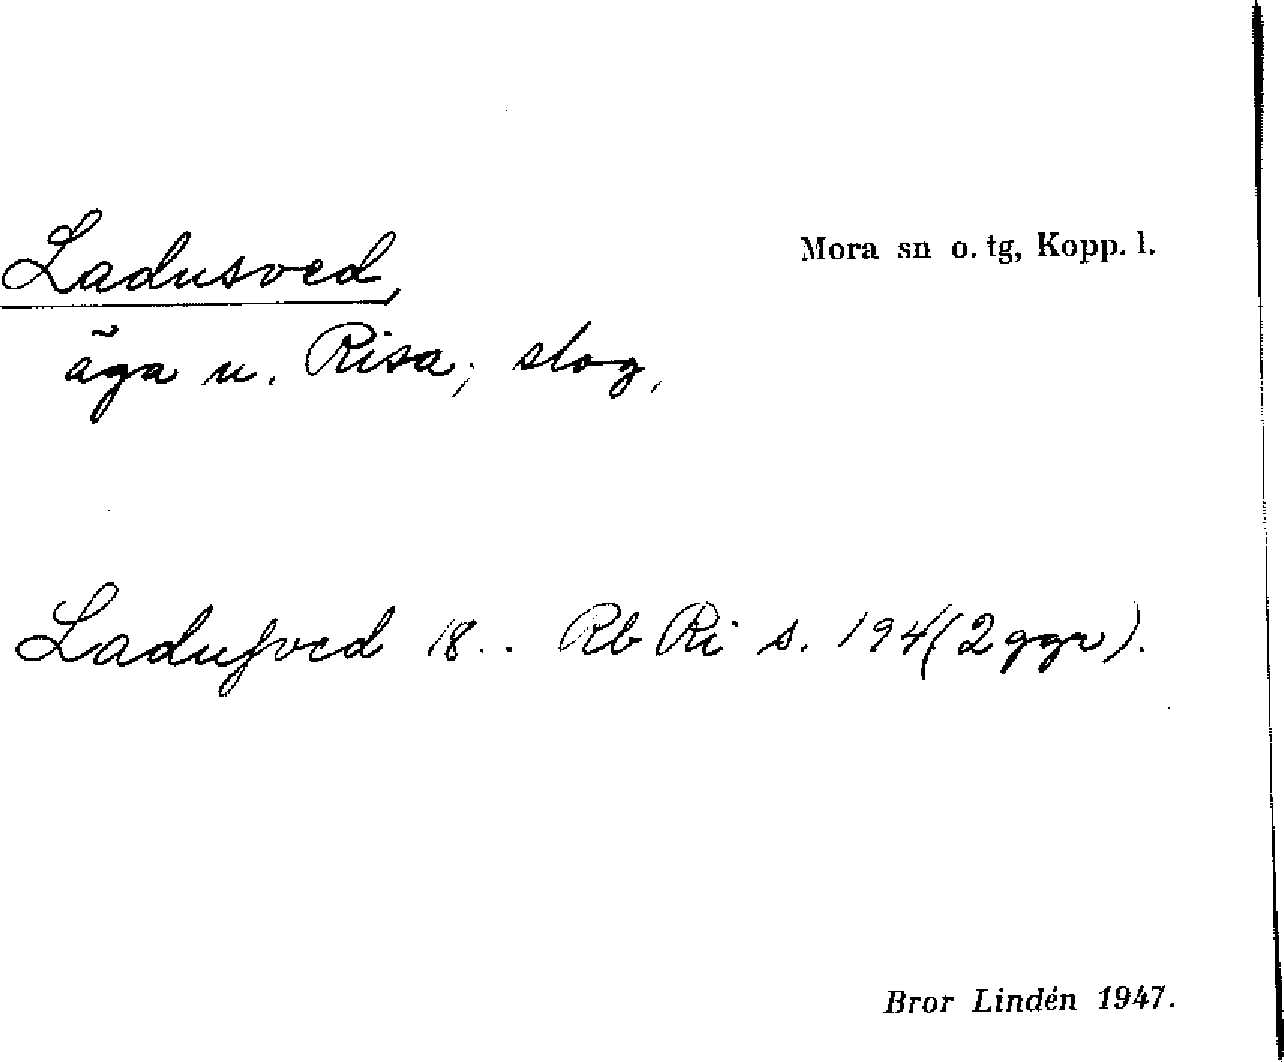 Ladusved,
Mora sn o. tg, Kopp. l.
äga u. Risa; slog,
Laduſved 18.. Rb Ri s. 194 (2 ggr).
Bror Lindén 1947.